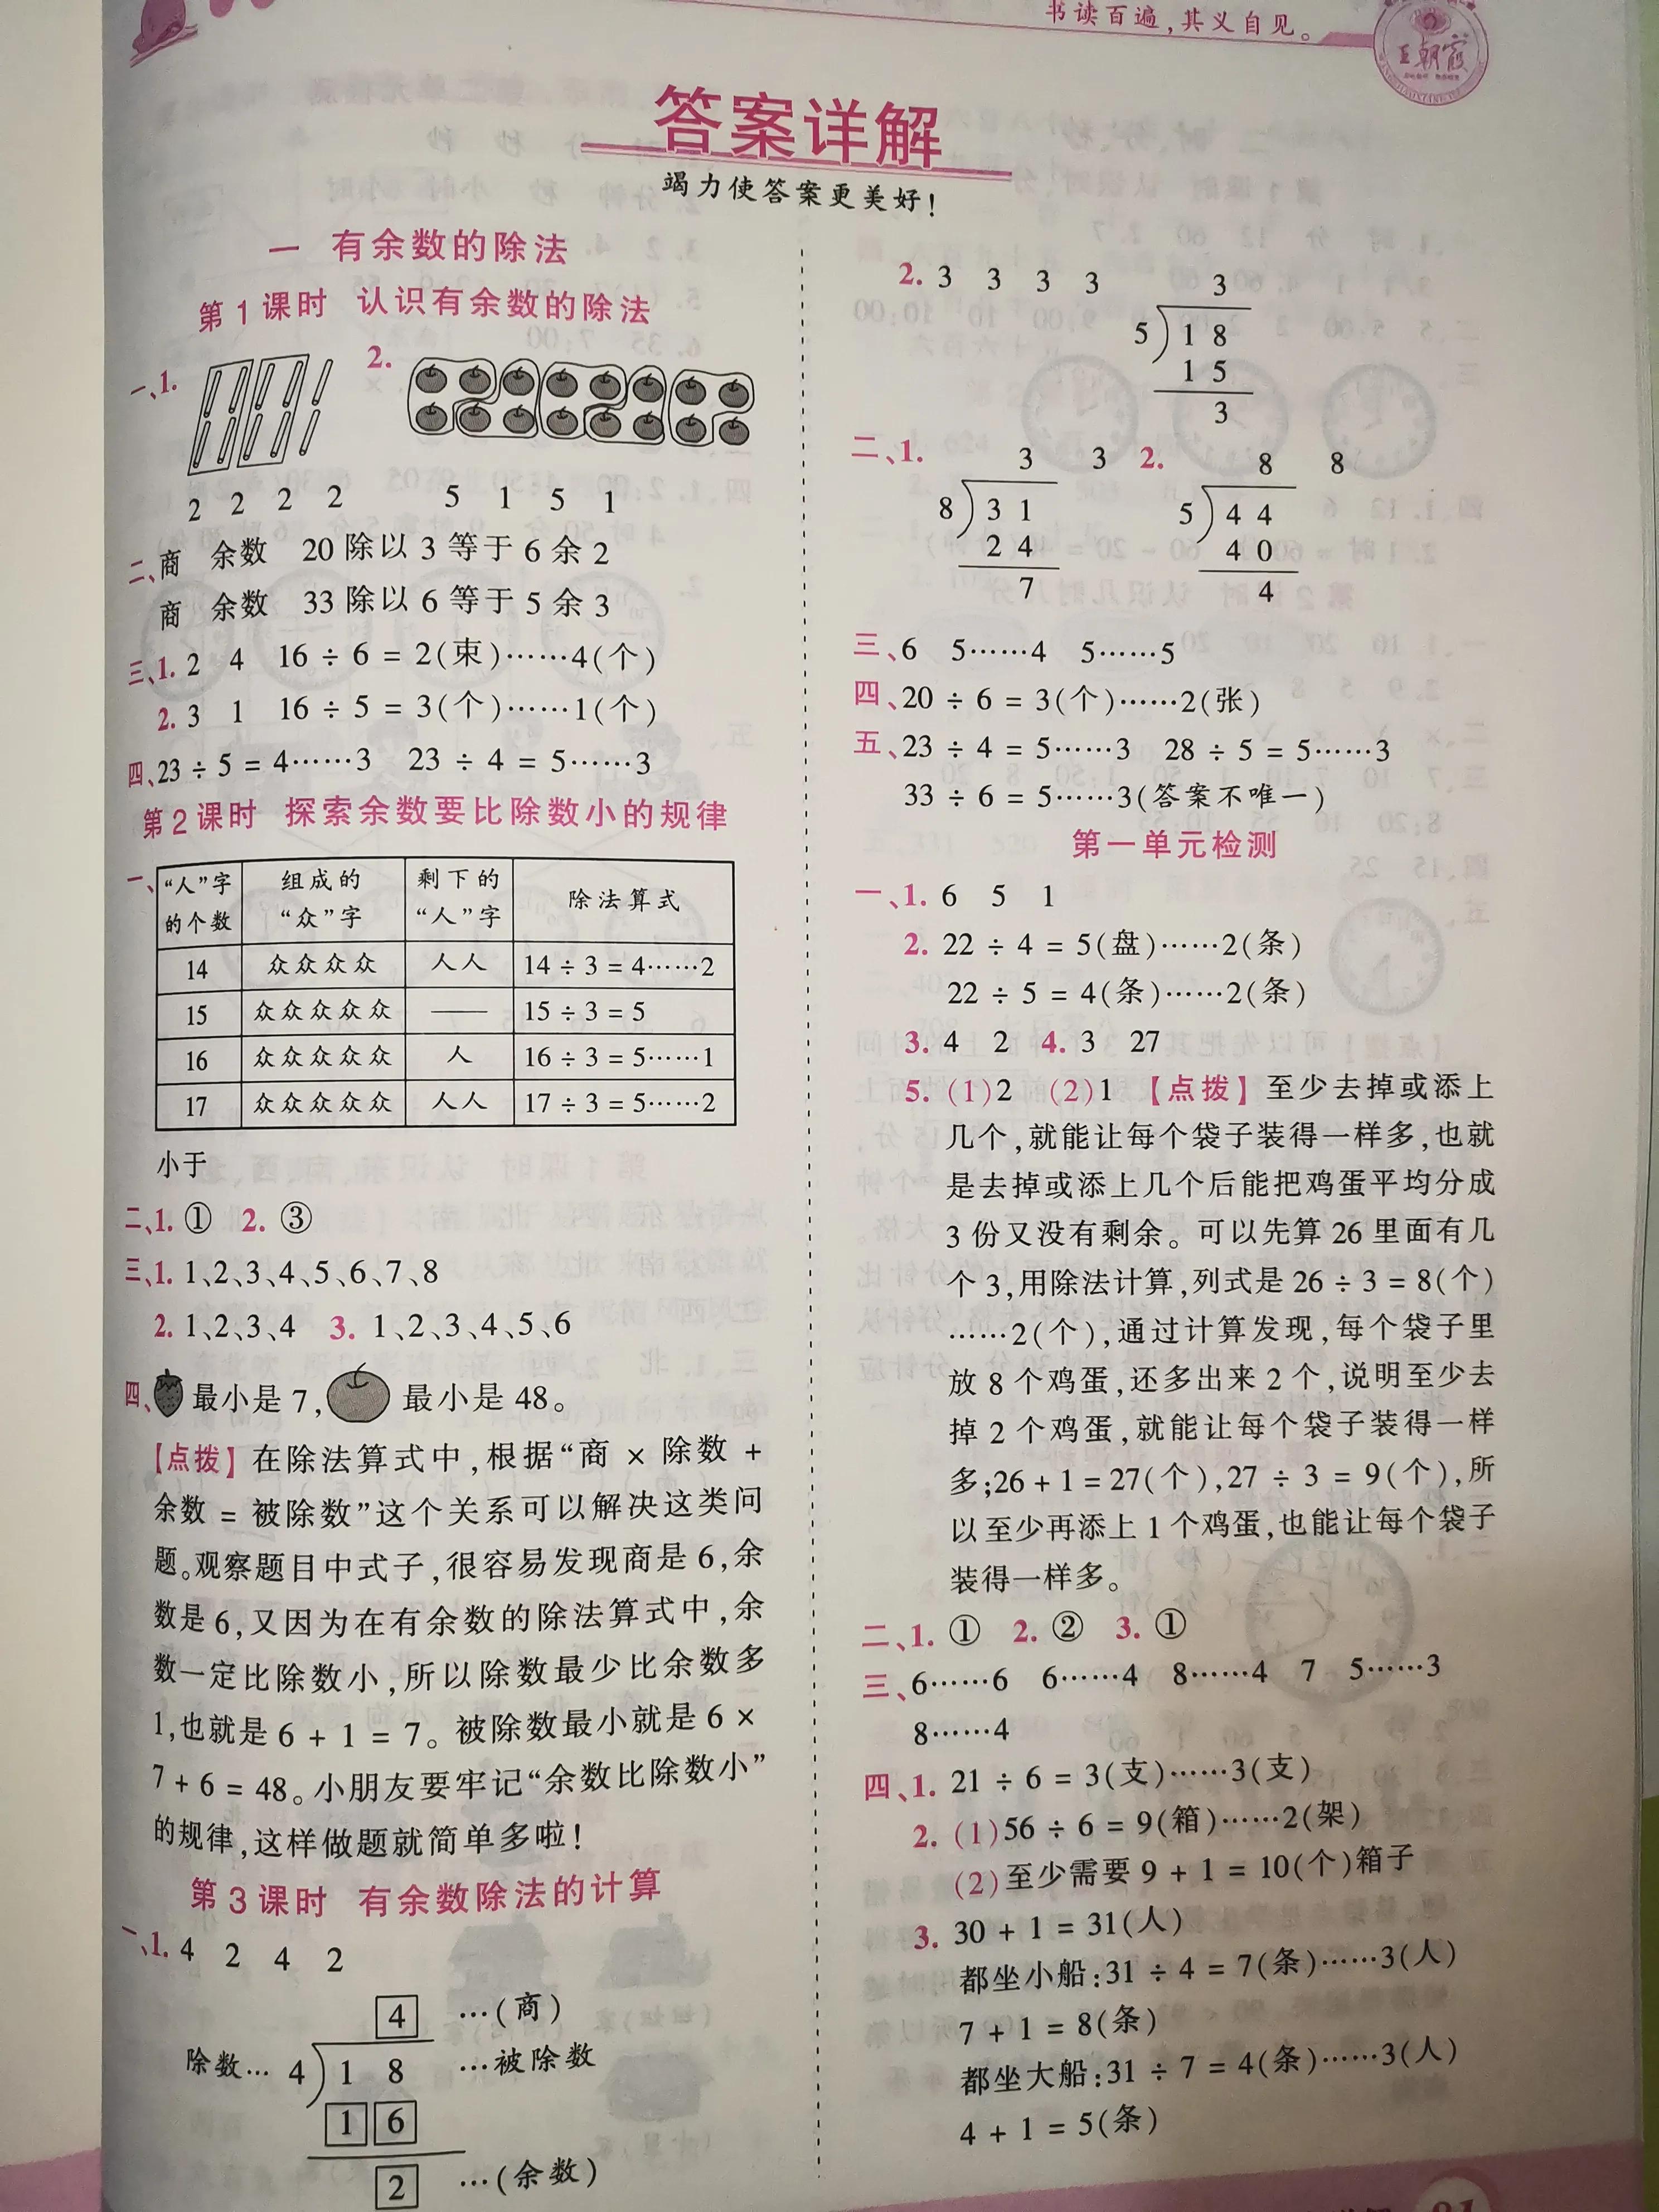 书读百遍,其义自见。
王朝霞
答案详解
竭力使答案更美好!
一 有余数的除法
第1课时 认识有余数的除法
一、1.
2.
2 2 2 2 5 1 5 1
二、商 余数 20除以3等于6余2
商 余数 33除以6等于5余3
三、1. 2 4 16 ÷ 6 = 2(束)……4(个)
2. 3 1 16 ÷ 5 = 3(个)……1(个)
四、23 ÷ 5 = 4……3 23 ÷ 4 = 5……3
第2课时 探索余数要比除数小的规律
一、
“人”字的个数 组成的“众”字 剩下的“人”字 除法算式
14 众众众众 人人 14 ÷ 3 = 4……2
15 众众众众众 —— 15 ÷ 3 = 5
16 众众众众众 人 16 ÷ 3 = 5……1
17 众众众众众 人人 17 ÷ 3 = 5……2
小于
二、1. ① 2. ③
三、1. 1、2、3、4、5、6、7、8
2. 1、2、3、4 3. 1、2、3、4、5、6
四、最小是7,最小是48。
【点拨】在除法算式中,根据“商 × 除数 +
余数 = 被除数”这个关系可以解决这类问
题。观察题目中式子,很容易发现商是6,余
数是6,又因为在有余数的除法算式中,余
数一定比除数小,所以除数最少比余数多
1,也就是6 + 1 = 7。被除数最小就是6 ×
7 + 6 = 48。小朋友要牢记“余数比除数小”
的规律,这样做题就简单多啦!
第3课时 有余数除法的计算
一、1. 4 2 4 2
4 …(商)
除数… 4 ) 1 8 …被除数
1 6
2 …(余数)
2. 3 3 3 3 3
5 ) 1 8
1 5
3
二、1. 3 3 2. 8 8
8 ) 3 1 5 ) 4 4
2 4 4 0
7 4
三、6 5……4 5……5
四、20 ÷ 6 = 3(个)……2(张)
五、23 ÷ 4 = 5……3 28 ÷ 5 = 5……3
33 ÷ 6 = 5……3(答案不唯一)
第一单元检测
一、1. 6 5 1
2. 22 ÷ 4 = 5(盘)……2(条)
22 ÷ 5 = 4(条)……2(条)
3. 4 2 4. 3 27
5. (1)2 (2)1 【点拨】至少去掉或添上
几个,就能让每个袋子装得一样多,也就
是去掉或添上几个后能把鸡蛋平均分成
3份又没有剩余。可以先算26里面有几
个3,用除法计算,列式是26 ÷ 3 = 8(个)
……2(个),通过计算发现,每个袋子里
放8个鸡蛋,还多出来2个,说明至少去
掉2个鸡蛋,就能让每个袋子装得一样
多;26 + 1 = 27(个),27 ÷ 3 = 9(个),所
以至少再添上1个鸡蛋,也能让每个袋子
装得一样多。
二、1. ① 2. ② 3. ①
三、6……6 6……4 8……4 7 5……3
8……4
四、1. 21 ÷ 6 = 3(支)……3(支)
2. (1)56 ÷ 6 = 9(箱)……2(架)
(2)至少需要9 + 1 = 10(个)箱子
3. 30 + 1 = 31(人)
都坐小船:31 ÷ 4 = 7(条)……3(人)
7 + 1 = 8(条)
都坐大船:31 ÷ 7 = 4(条)……3(人)
4 + 1 = 5(条)